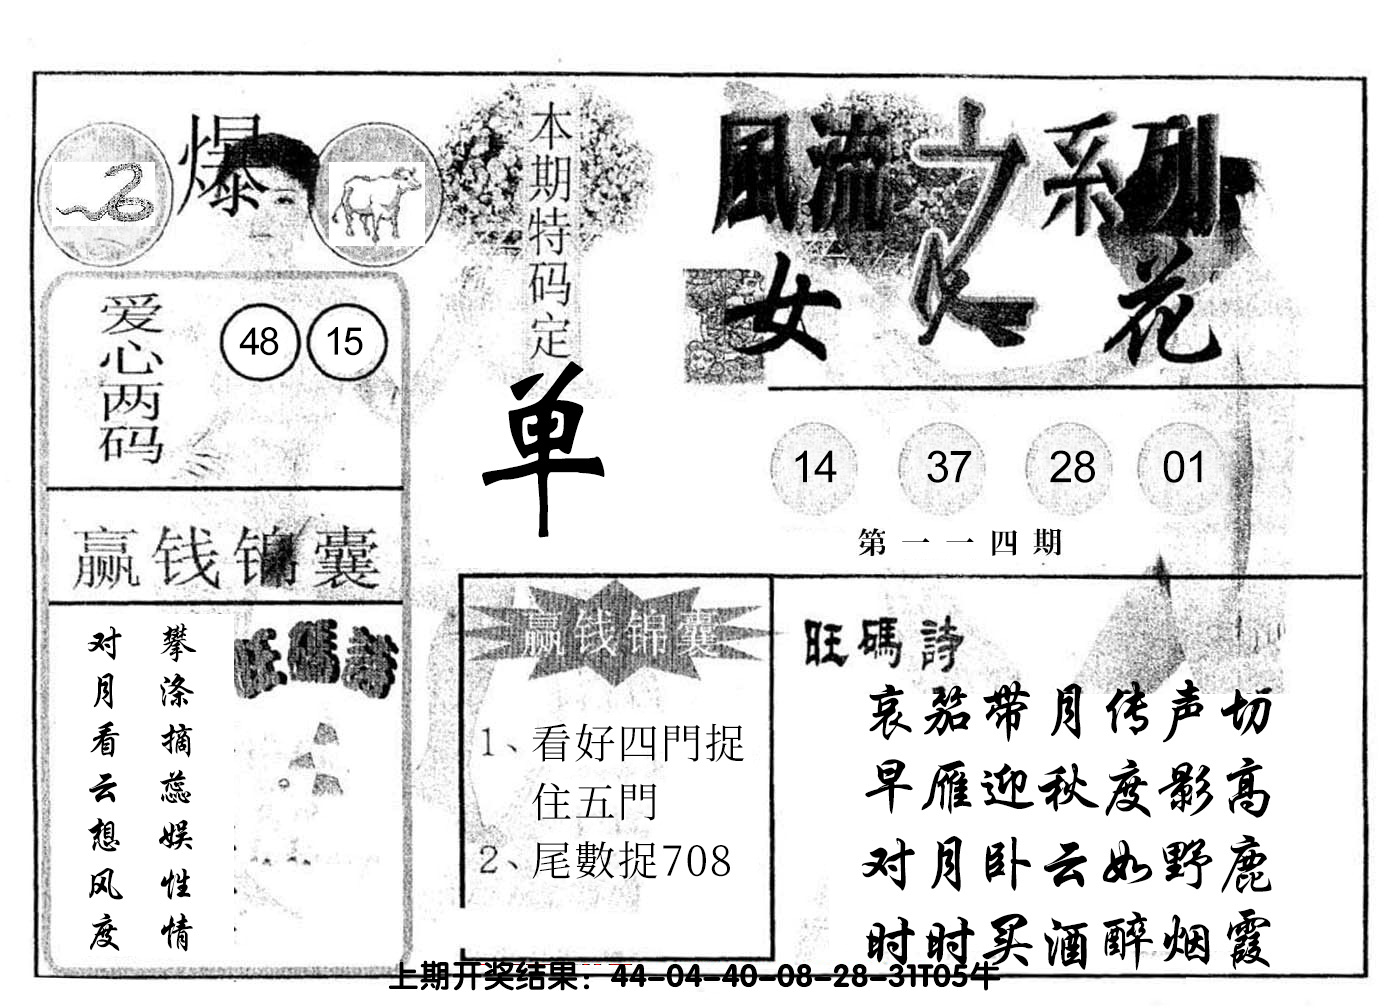 爆
本期特码定
单
風流之系列
女人花
爱心两码
48 15
14 37 28 01
第一一四期
赢钱锦囊
旺碼詩
攀涤摘蕊娱性情
对月看云想风度
赢钱锦囊
1、看好四門捉
住五門
2、尾數捉708
旺碼詩
哀笳带月传声切
早雁迎秋度影高
对月卧云如野鹿
时时买酒醉烟霞
上期开奖结果：44-04-40-08-28-31T05牛